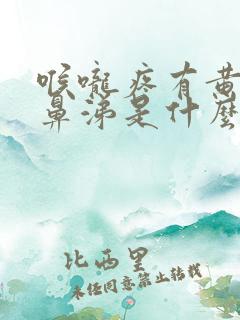 喉嚨疼有黄
鼻涕是什麽
比西里
未经同意禁止转载